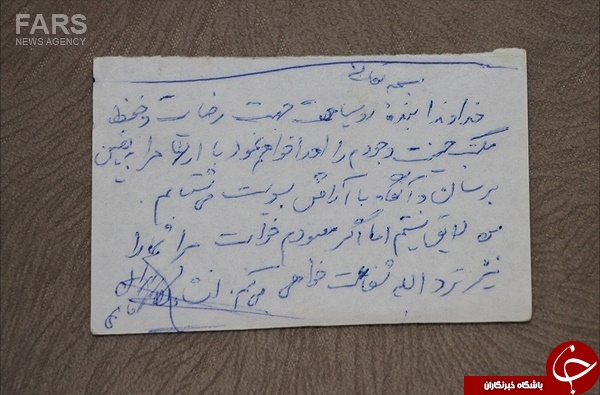 FARS
NEWS AGENCY
بسمه تعالی
خداوندا بنده روسیاهت جهت رضات و حفظ
مکتب خمینی وجودم را اهدا خواهم نمود یا ارتقا مرا به یقین
برسان و آنگاه با آرامش بسویت می شتابم.
من لایق نیستم اما اگر معبودم مرا شما را
نیز نزد الله شفاعت خواهی می کنم. انشاءالله
باشگاه خبرنگاران